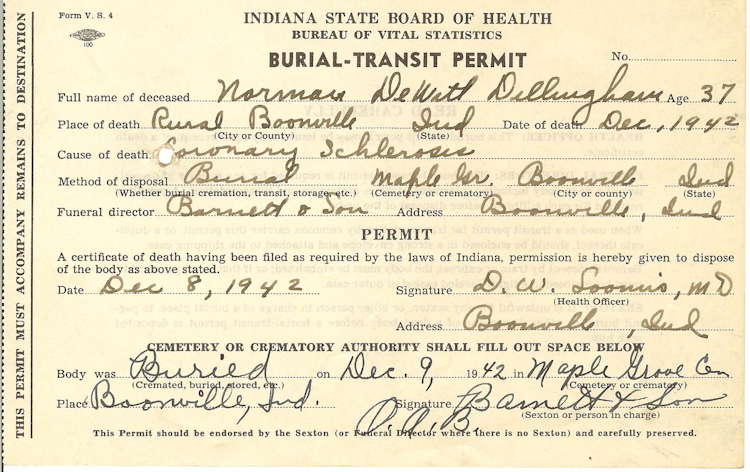 Form V. S. 4
100
INDIANA STATE BOARD OF HEALTH
BUREAU OF VITAL STATISTICS
BURIAL-TRANSIT PERMIT
No.
Full name of deceased Norman DeWitt Dillingham Age 37
Place of death Rural Boonville Ind Date of death Dec, 1942
(City or County) (State)
Cause of death Coronary Schlerosis
Method of disposal Burial Maple Gr. Boonville Ind
(Whether burial cremation, transit, storage, etc.) (Cemetery or crematory) (City or county) (State)
Funeral director Barnett & Son Address Boonville, Ind
PERMIT
A certificate of death having been filed as required by the laws of Indiana, permission is hereby given to dispose
of the body as above stated.
Date Dec 8, 1942 Signature D. W. Loomis, MD
(Health Officer)
Address Boonville, Ind
CEMETERY OR CREMATORY AUTHORITY SHALL FILL OUT SPACE BELOW
Body was Buried on Dec. 9, 1942 in Maple Grove Cem
(Cremated, buried, stored, etc.) (Cemetery or crematory)
Place Boonville, Ind. Signature Barnett & Son
(Sexton or person in charge)
This Permit should be endorsed by the Sexton (or Funeral Director where there is no Sexton) and carefully preserved.
THIS PERMIT MUST ACCOMPANY REMAINS TO DESTINATION